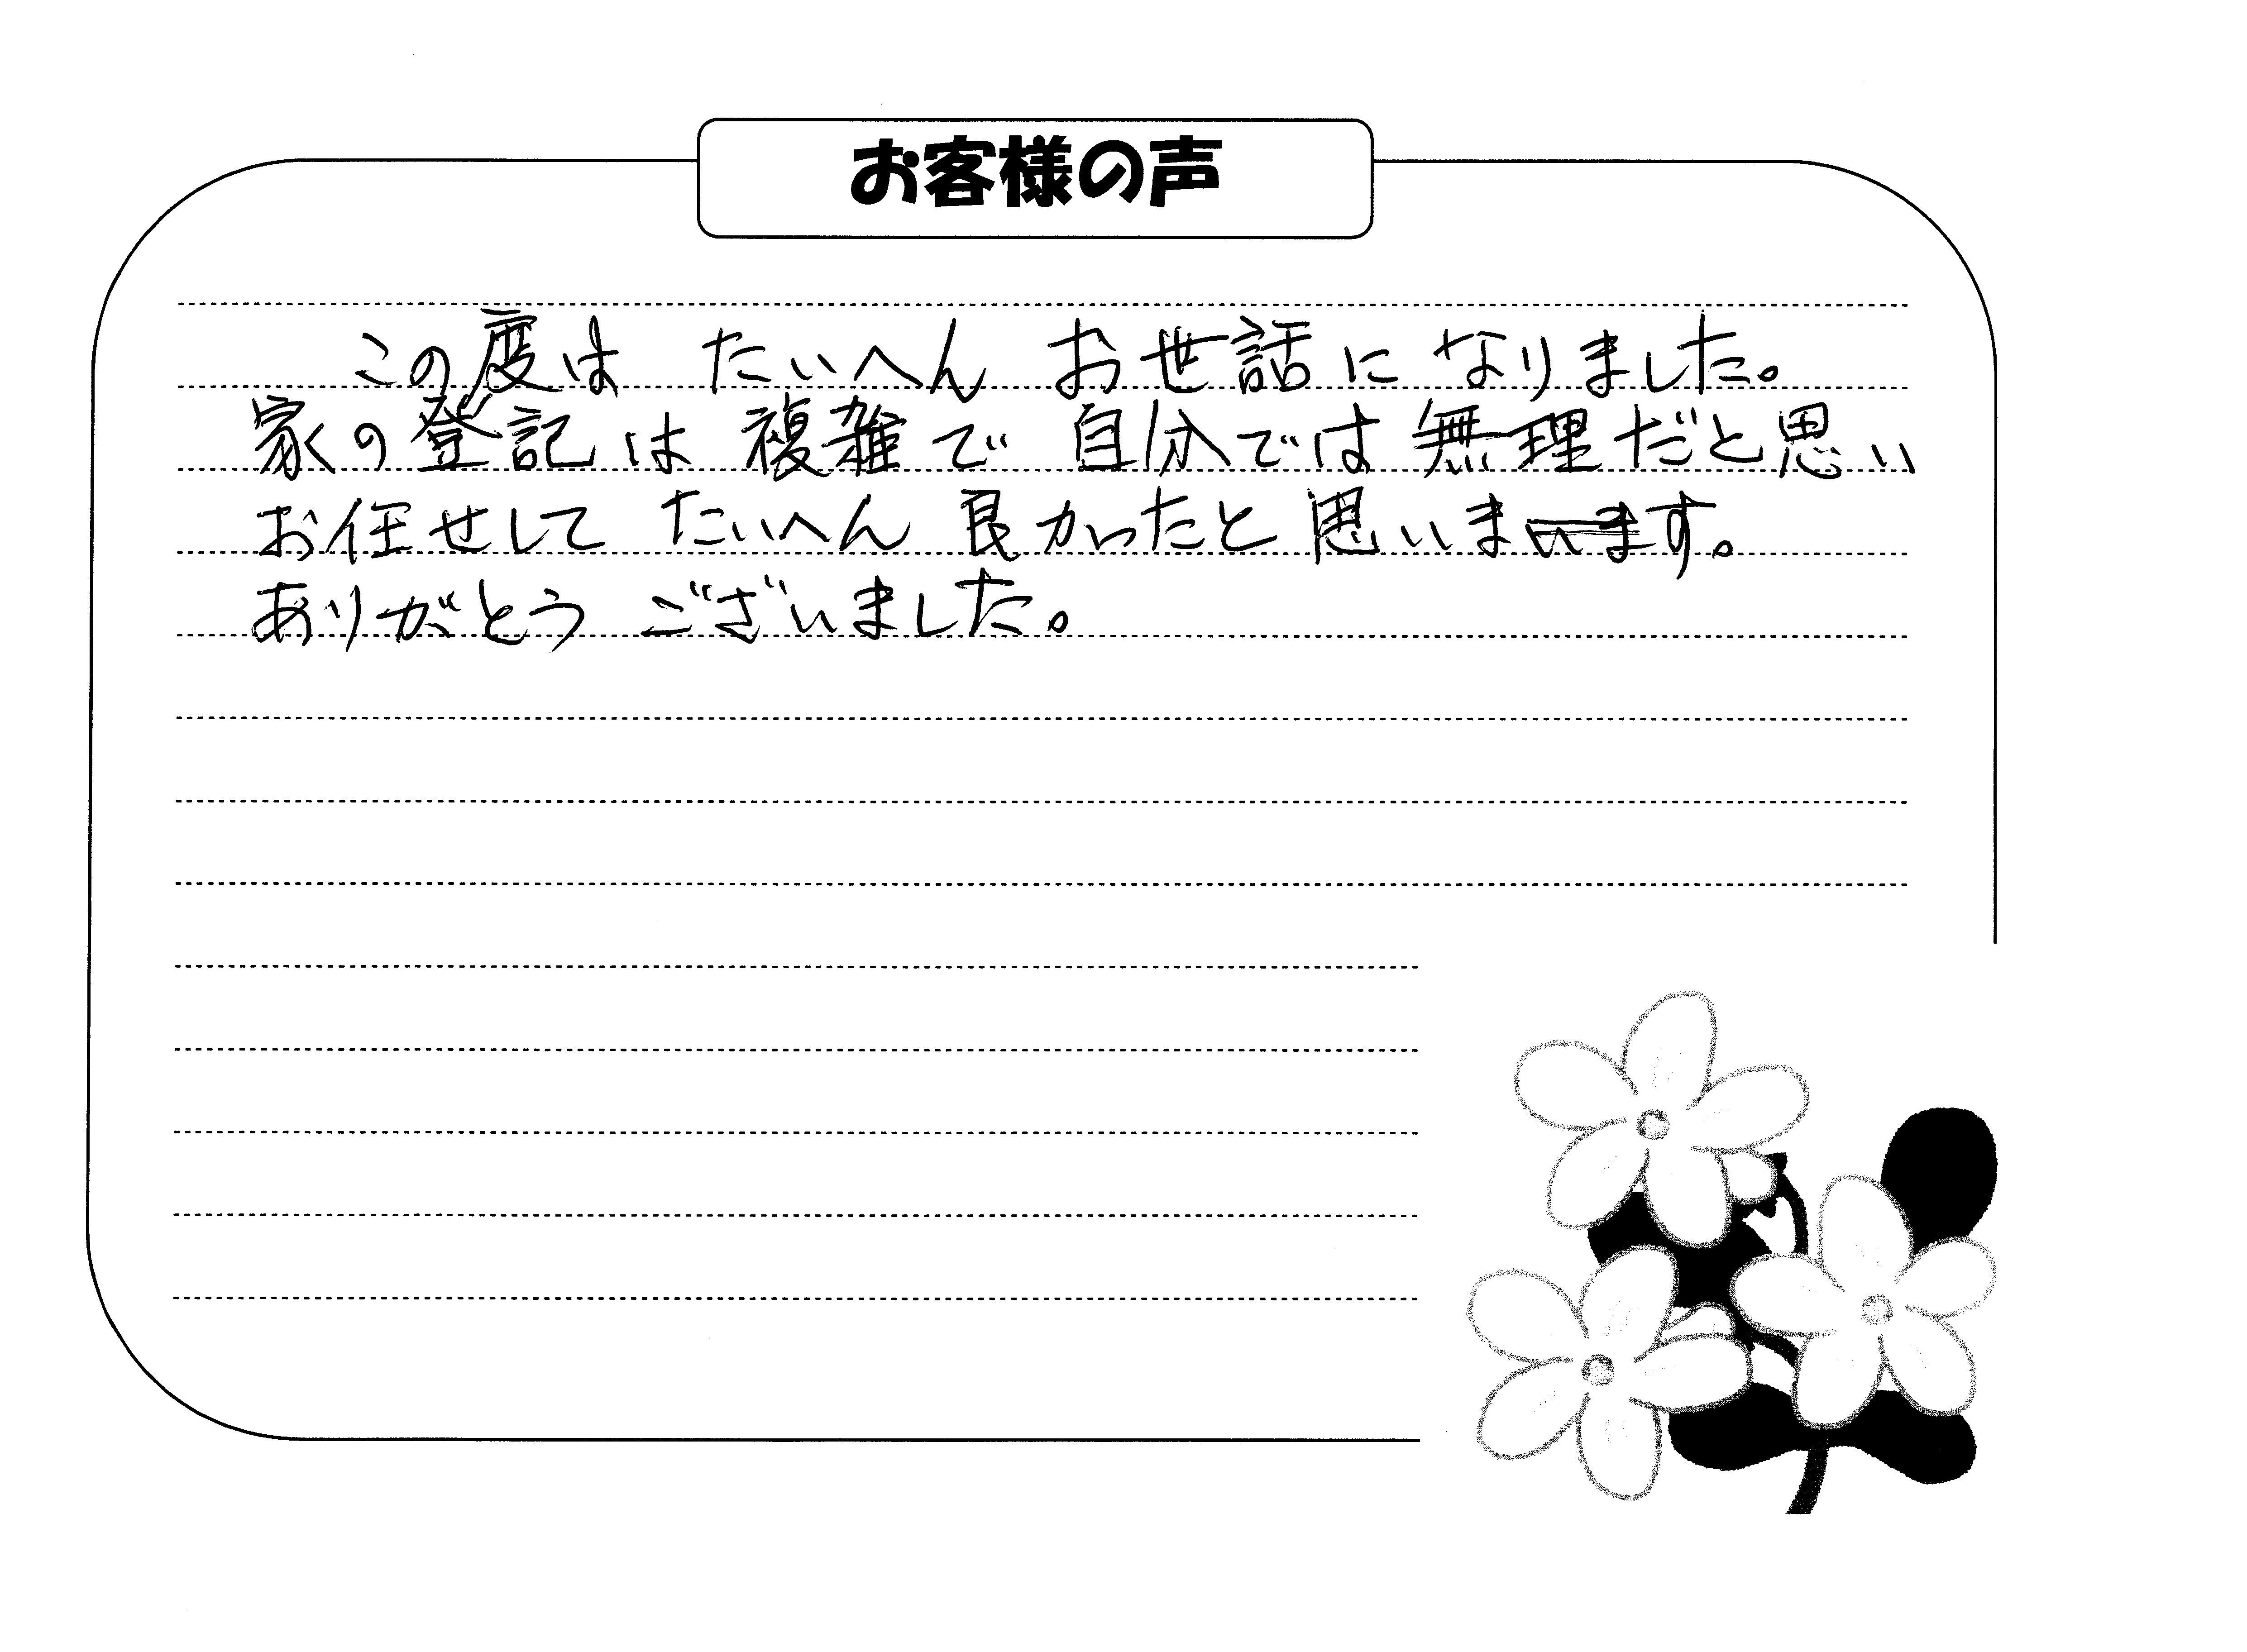 お客様の声
この度は たいへん お世話に なりました。
家の登記は 複雑で 自分では無理だと思い
お任せして たいへん 良かったと 思います。
ありがとう ございました。